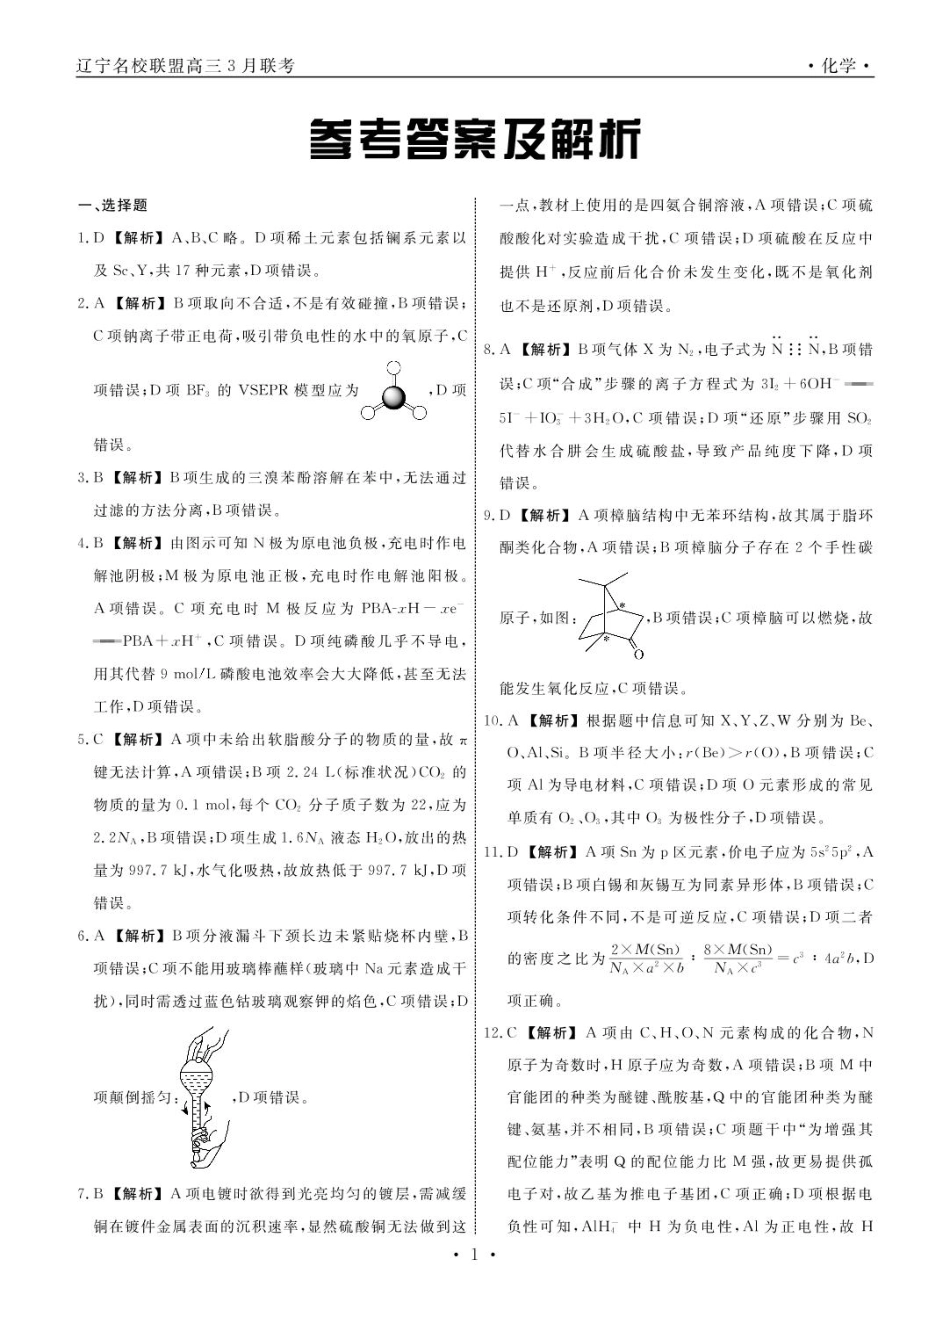 辽宁名校联盟高三3月联考
·化学·
参考答案及解析
一、选择题
1. D 【解析】A、B、C 略。D 项稀土元素包括镧系元素以
及 Sc、Y,共 17 种元素,D 项错误。
2. A 【解析】B 项取向不合适,不是有效碰撞,B 项错误;
C 项钠离子带正电荷,吸引带负电性的水中的氧原子,C
项错误;D 项 BF₃ 的 VSEPR 模型应为 ,D 项
错误。
3. B 【解析】B 项生成的三溴苯酚溶解在苯中,无法通过
过滤的方法分离,B 项错误。
4. B 【解析】由图示可知 N 极为原电池负极,充电时作电
解池阴极;M 极为原电池正极,充电时作电解池阳极。
A 项错误。C 项充电时 M 极反应为 PBA-xH－xe⁻
══PBA＋xH⁺,C 项错误。D 项纯磷酸几乎不导电,
用其代替 9 mol/L 磷酸电池效率会大大降低,甚至无法
工作,D 项错误。
5. C 【解析】A 项中未给出软脂酸分子的物质的量,故 π
键无法计算,A 项错误;B 项 2.24 L(标准状况)CO₂ 的
物质的量为 0.1 mol,每个 CO₂ 分子质子数为 22,应为
2.2Nₐ,B 项错误;D 项生成 1.6Nₐ 液态 H₂O,放出的热
量为 997.7 kJ,水气化吸热,故放热低于 997.7 kJ,D 项
错误。
6. A 【解析】B 项分液漏斗下颈长边未紧贴烧杯内壁,B
项错误;C 项不能用玻璃棒蘸样(玻璃中 Na 元素造成干
扰),同时需透过蓝色钴玻璃观察钾的焰色,C 项错误;D
项颠倒摇匀: ,D 项错误。
7. B 【解析】A 项电镀时欲得到光亮均匀的镀层,需减缓
铜在镀件金属表面的沉积速率,显然硫酸铜无法做到这
一点,教材上使用的是四氨合铜溶液,A 项错误;C 项硫
酸酸化对实验造成干扰,C 项错误;D 项硫酸在反应中
提供 H⁺,反应前后化合价未发生变化,既不是氧化剂
也不是还原剂,D 项错误。
8. A 【解析】B 项气体 X 为 N₂,电子式为 N̈⋮⋮N̈,B 项错
误;C 项“合成”步骤的离子方程式为 3I₂＋6OH⁻══
5I⁻＋IO₃⁻＋3H₂O,C 项错误;D 项“还原”步骤用 SO₂
代替水合肼会生成硫酸盐,导致产品纯度下降,D 项
错误。
9. D 【解析】A 项樟脑结构中无苯环结构,故其属于脂环
酮类化合物,A 项错误;B 项樟脑分子存在 2 个手性碳
原子,如图: * * O ,B 项错误;C 项樟脑可以燃烧,故
能发生氧化反应,C 项错误。
10. A 【解析】根据题中信息可知 X、Y、Z、W 分别为 Be、
O、Al、Si。B 项半径大小:r(Be)＞r(O),B 项错误;C
项 Al 为导电材料,C 项错误;D 项 O 元素形成的常见
单质有 O₂、O₃,其中 O₃ 为极性分子,D 项错误。
11. D 【解析】A 项 Sn 为 p 区元素,价电子应为 5s²5p²,A
项错误;B 项白锡和灰锡互为同素异形体,B 项错误;C
项转化条件不同,不是可逆反应,C 项错误;D 项二者
的密度之比为 2×M(Sn)/(Nₐ×a²×b) : 8×M(Sn)/(Nₐ×c³) = c³ : 4a²b,D
项正确。
12. C 【解析】A 项由 C、H、O、N 元素构成的化合物,N
原子为奇数时,H 原子应为奇数,A 项错误;B 项 M 中
官能团的种类为醚键、酰胺基,Q 中的官能团种类为醚
键、氨基,并不相同,B 项错误;C 项题干中“为增强其
配位能力”表明 Q 的配位能力比 M 强,故更易提供孤
电子对,故乙基为推电子基团,C 项正确;D 项根据电
负性可知,AlH₄⁻ 中 H 为负电性,Al 为正电性,故 H
· 1 ·